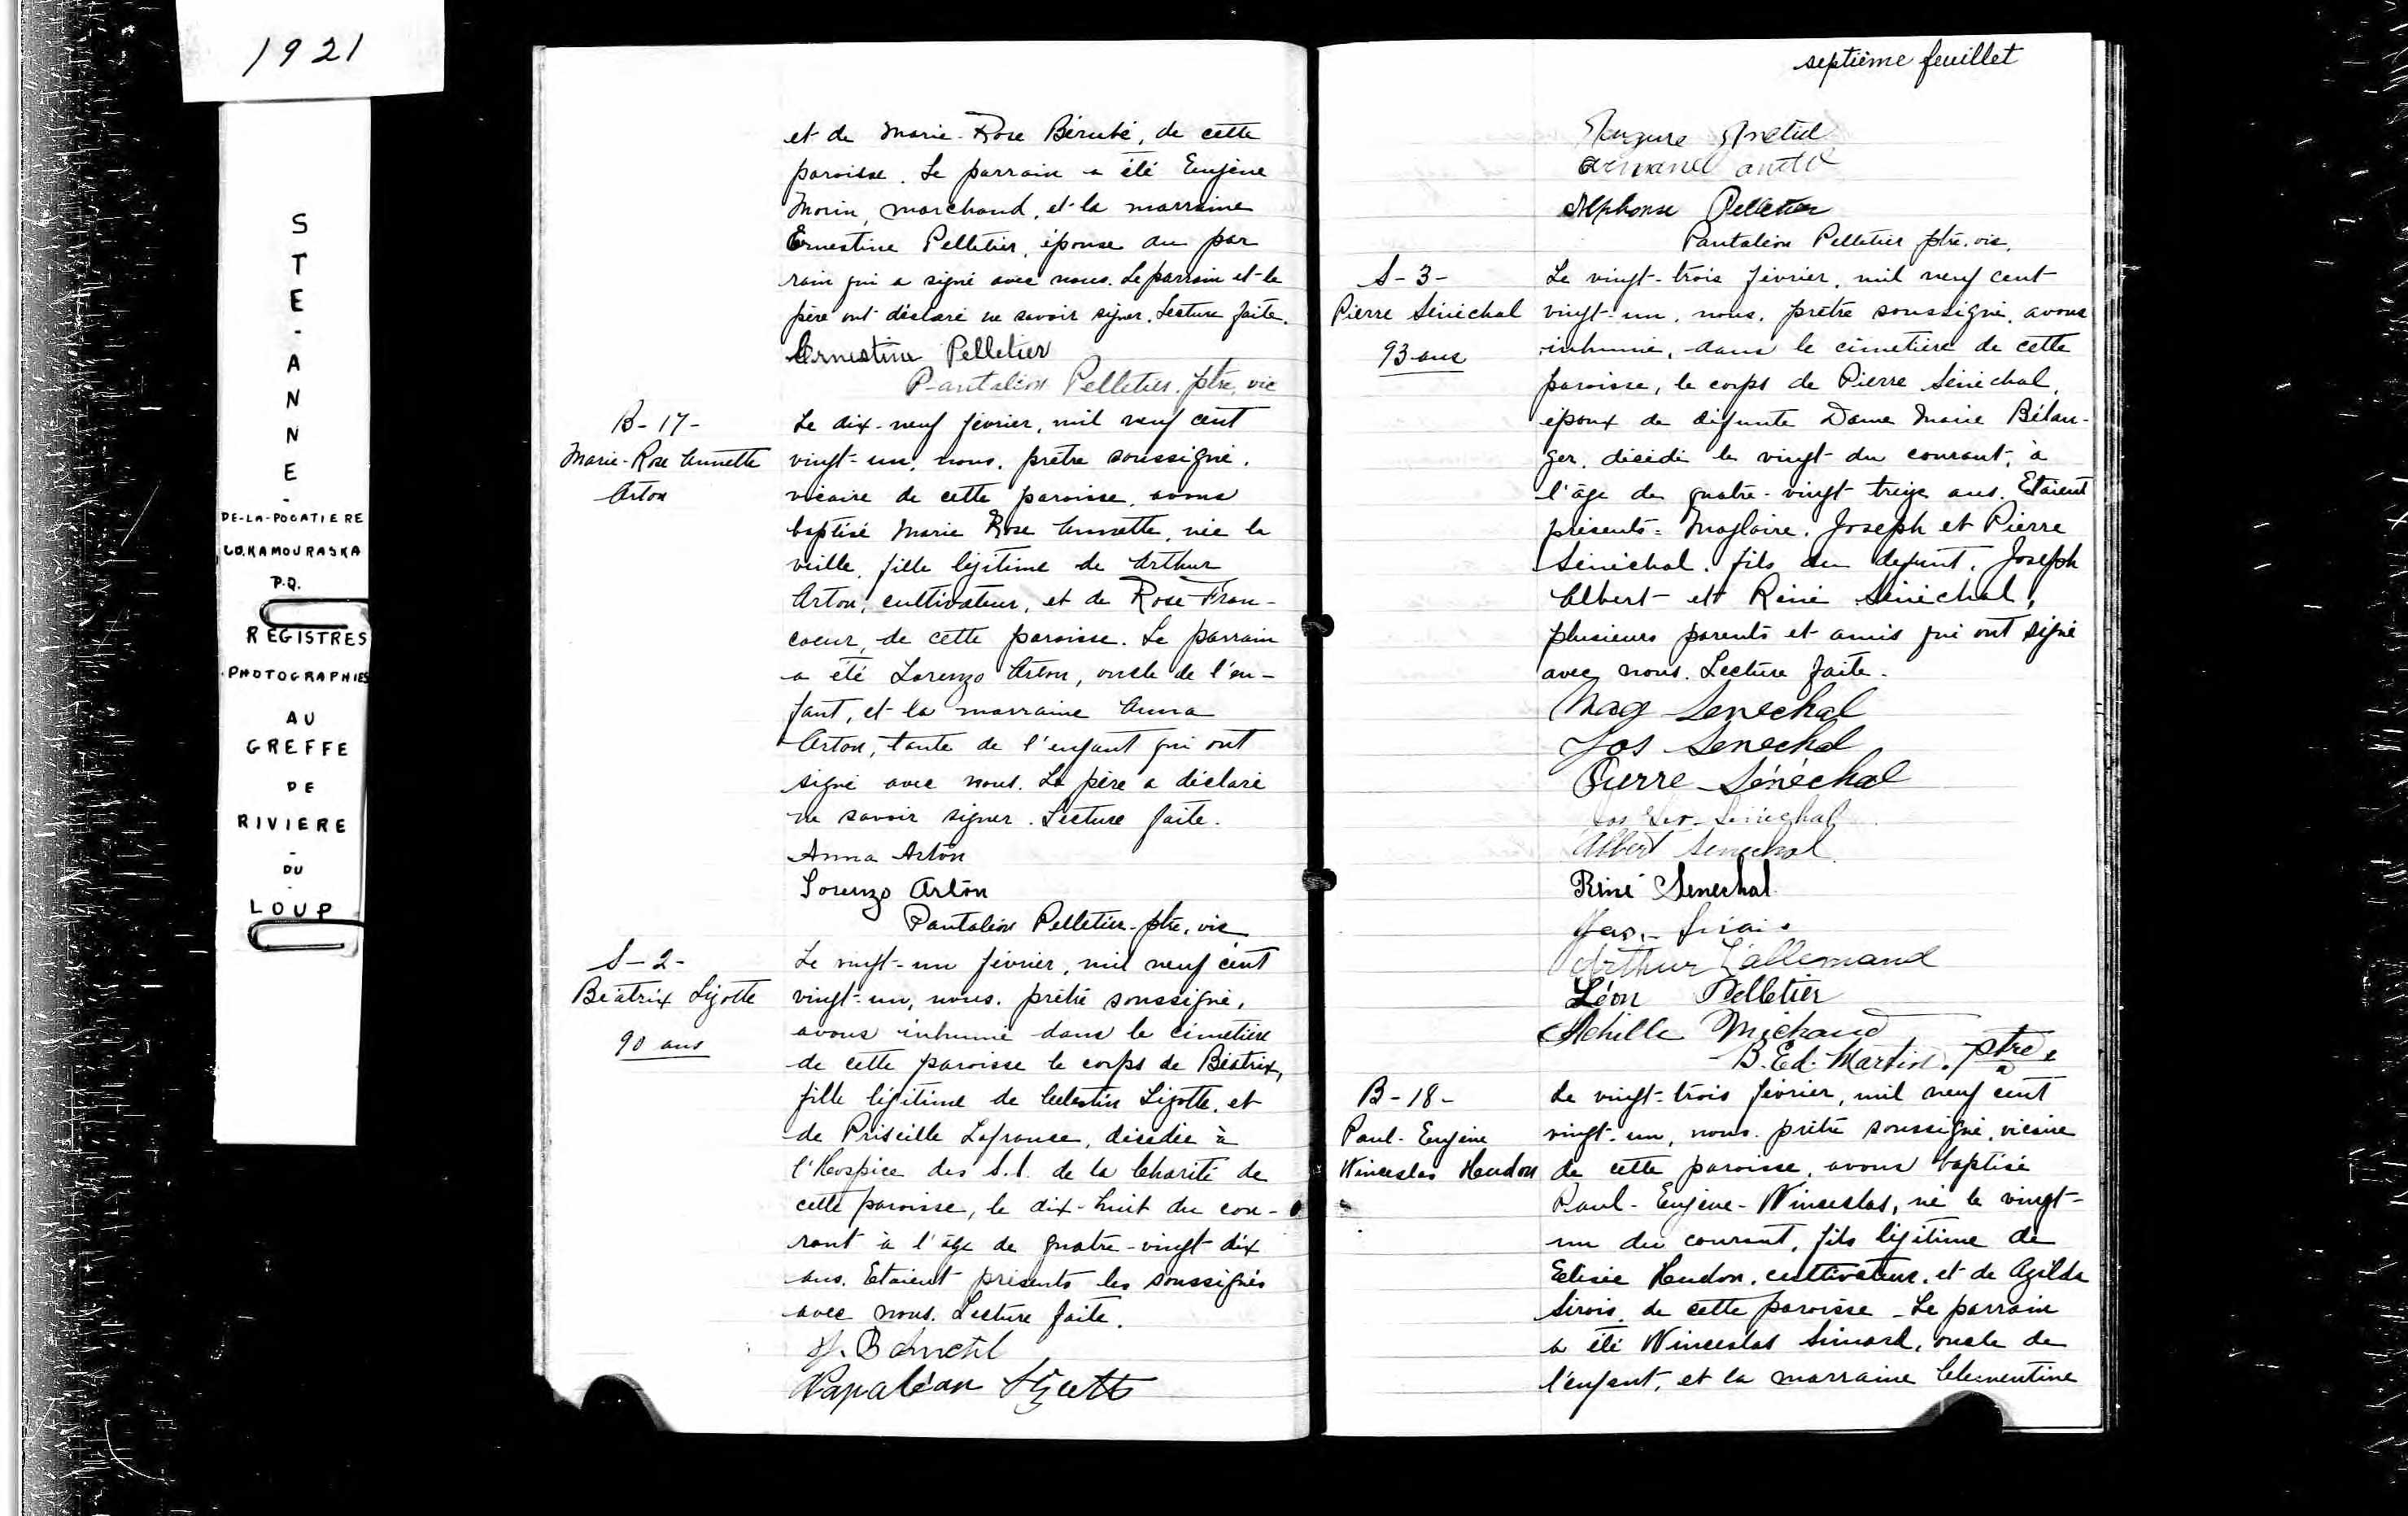 1921
STE-ANNE-
DE-LA-POCATIERE
CO. KAMOURASKA
P.Q.
REGISTRES
PHOTOGRAPHIES
AU
GREFFE
DE
RIVIERE
-
DU
-
LOUP
et de Marie-Rose Bérubé, de cette
paroisse. Le parrain a été Eugène
Morin, marchand, et la marraine
Ernestine Pelletier, épouse du par
rain qui a signé avec nous. Le parrain et le
père ont déclaré ne savoir signer. Lecture faite.
Ernestine Pelletier
Pantaléon Pelletier, ptre, vic
B-17-
Marie-Rose Annette
Arton
Le dix-neuf février, mil neuf cent
vingt-un, nous, prêtre soussigné,
vicaire de cette paroisse, avons
baptisé Marie Rose Annette, née la
veille, fille légitime de Arthur
Arton, cultivateur, et de Rose Fran-
coeur, de cette paroisse. Le parrain
a été Lorenzo Arton, oncle de l'en-
fant, et la marraine Anna
Arton, tante de l'enfant qui ont
signé avec nous. Le père a déclaré
ne savoir signer. Lecture faite.
Anna Arton
Lorenzo Arton
Pantaléon Pelletier-ptre, vic
S-2-
Béatrix Lizotte
90 ans
Le vingt-un février, mil neuf cent
vingt-un, nous, prêtre soussigné,
avons inhumé dans le cimetière
de cette paroisse le corps de Béatrix,
fille légitime de Célestin Lizotte, et
de Priscille Lafrance, décédée à
l'Hospice des S.S. de la Charité de
cette paroisse, le dix-huit du cou-
rant à l'âge de quatre-vingt dix
ans. Etaient présents les soussignés
avec nous. Lecture faite.
Napoléon Lizotte
septième feuillet
Armand
Alphonse Pelletier
Pantaléon Pelletier ptre. vic.
S-3-
Pierre Sénéchal
93 ans
Le vingt-trois février, mil neuf cent
vingt-un, nous, prêtre soussigné, avons
inhumé, dans le cimetière de cette
paroisse, le corps de Pierre Sénéchal,
époux de défunte Dame Marie Bélan-
ger, décédé le vingt du courant, à
l'âge de quatre-vingt treize ans. Etaient
présents = Magloire, Joseph et Pierre
Sénéchal, fils du défunt, Joseph
Albert et Réné Sénéchal,
plusieurs parents et amis qui ont signé
avec nous. Lecture faite.
Mag Senechal
Jos Senechal
Pierre Sénéchal
Jos Sénéchal
Albert Senechal
Réné Senechal
Arthur Lallemand
Léon Pelletier
Achille Michaud
B. Ed. Martin, ptre
B-18-
Paul-Eugène
Winceslas Hudon
Le vingt-trois février, mil neuf cent
vingt-un, nous, prêtre soussigné, vicaire
de cette paroisse, avons baptisé
Paul-Eugène-Winceslas, né le vingt-
un du courant, fils légitime de
Elisée Hudon, cultivateur, et de Azilda
Sirois, de cette paroisse - Le parrain
a été Winceslas Simard, oncle de
l'enfant, et la marraine Clémentine